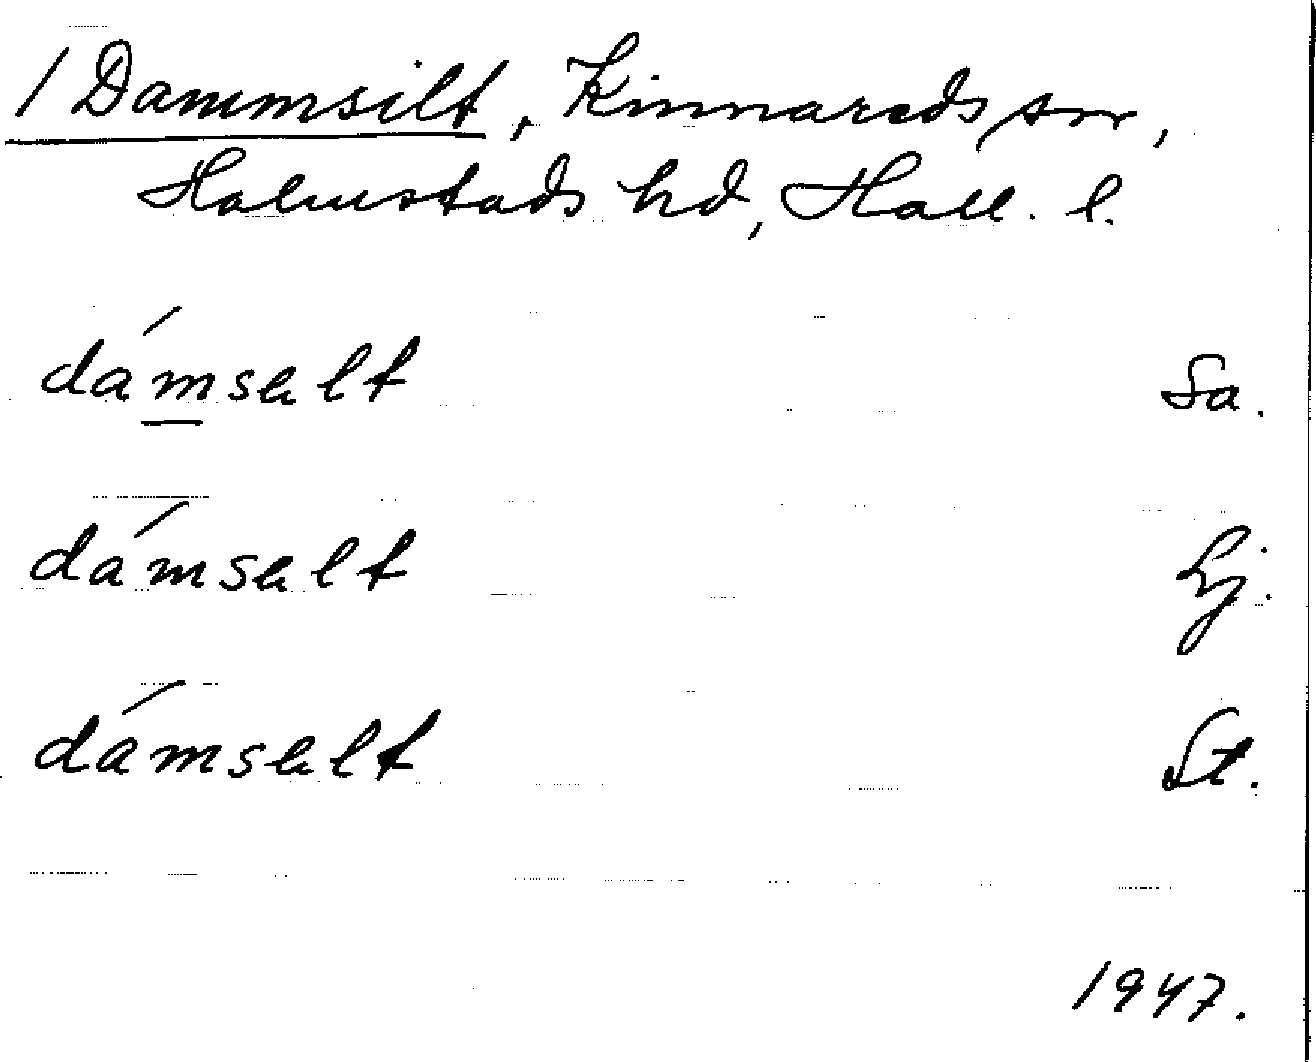 / Dammsilt, Kinnareds sn,
Halmstads hd, Hall. l.
dámsalt Sa.
dámsalt Lj.
dámsalt St.
1947.